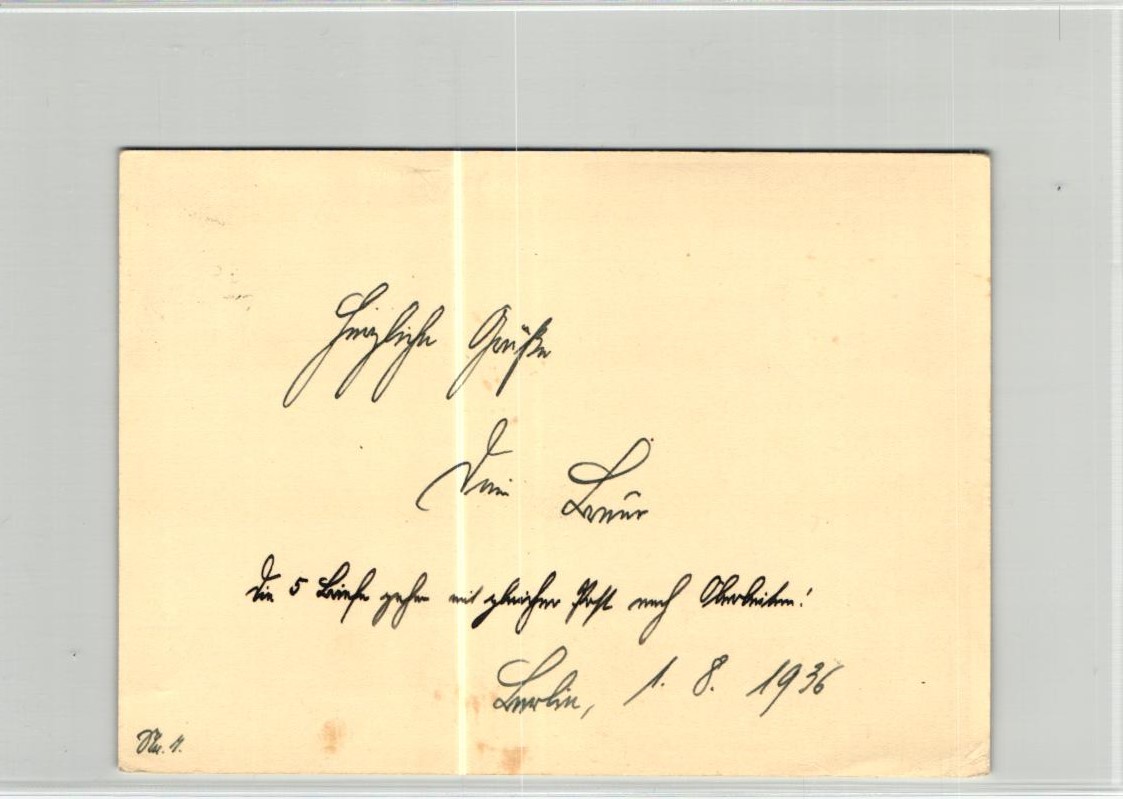 Herzliche Grüße
Dein
Die 5 Briefe gehen mit gleicher Post nach
Berlin, 1. 8. 1936
Nr. 1.